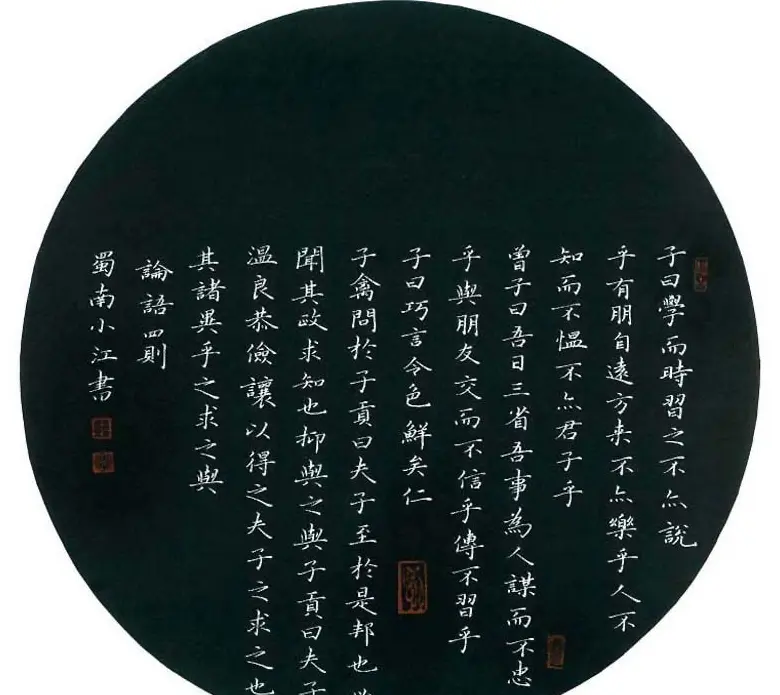 子曰學而時習之不亦說
乎有朋自遠方来不亦樂乎人不
知而不愠不亦君子乎
曾子曰吾日三省吾事為人謀而不忠
乎與朋友交而不信乎傳不習乎
子曰巧言令色鮮矣仁
子禽問於子貢曰夫子至於是邦也
聞其政求知也抑與之與子貢曰夫子
温良恭儉讓以得之夫子之求之也
其諸異乎之求之與
論語四則
蜀南小江書